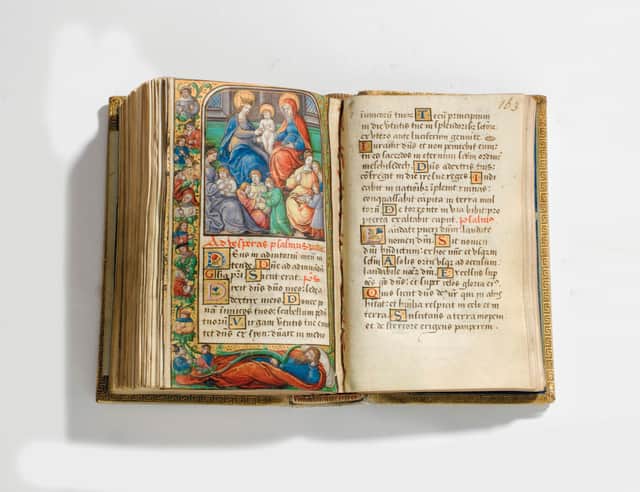 Ad vesperas psalmus
Deus in adiutoriū meū in
tende. Dñe ad adiuvandū
Glia pri Sicut erat. ps
Dixit dñs dño meo: sede a
dextris meis. Donec po
na inimicos tuos: scabellum pedū
tuorū Virgam v'tutis tue emi
tet dñs ex syon: dñare in medio
163
inimicorū tuorū. Tecū principium
in die v'tutis tue in splendorib9
ex utero ante luciferum genui te.
Iuravit dñs et non penitebit eum:
tu es sacerdos in eternum scdm ordinē
melchisedech. Dñs a dextris tuis:
cōfregit in die ire sue reges. Iudi
cabit in natiōib9 īplebit ruinas:
conquassabit capita in terra mul
torū. De torrente in via bibit: pro
pterea exaltabit caput. psalmus
Laudate pueri dñm: laudate
nomen dñi. Sit nomen
dñi bñdictum: ex hoc nūc et usq
A solis ortu usq ad
laudabile dñi. Excelsus sup
dñs: et super celos gloria ei9.
Quis sicut dñs ds nr qui in altis
hitat: et humilia respicit in celo et in
terra. Suscitans a terra inopem
et de stercore erigens pauperem.